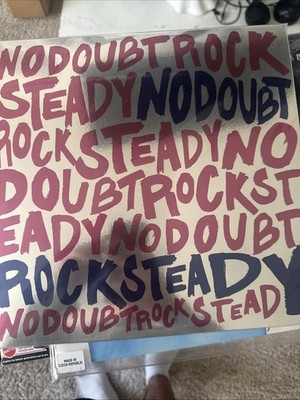 NODOUBTROCK
STEADYNODOUBT
ROCKSTEADYNO
DOUBTROCKST
EADYNODOUBT
ROCKSTEADY
NODOUBTROCKSTEAD
MADE IN
CZECH REPUBLIC